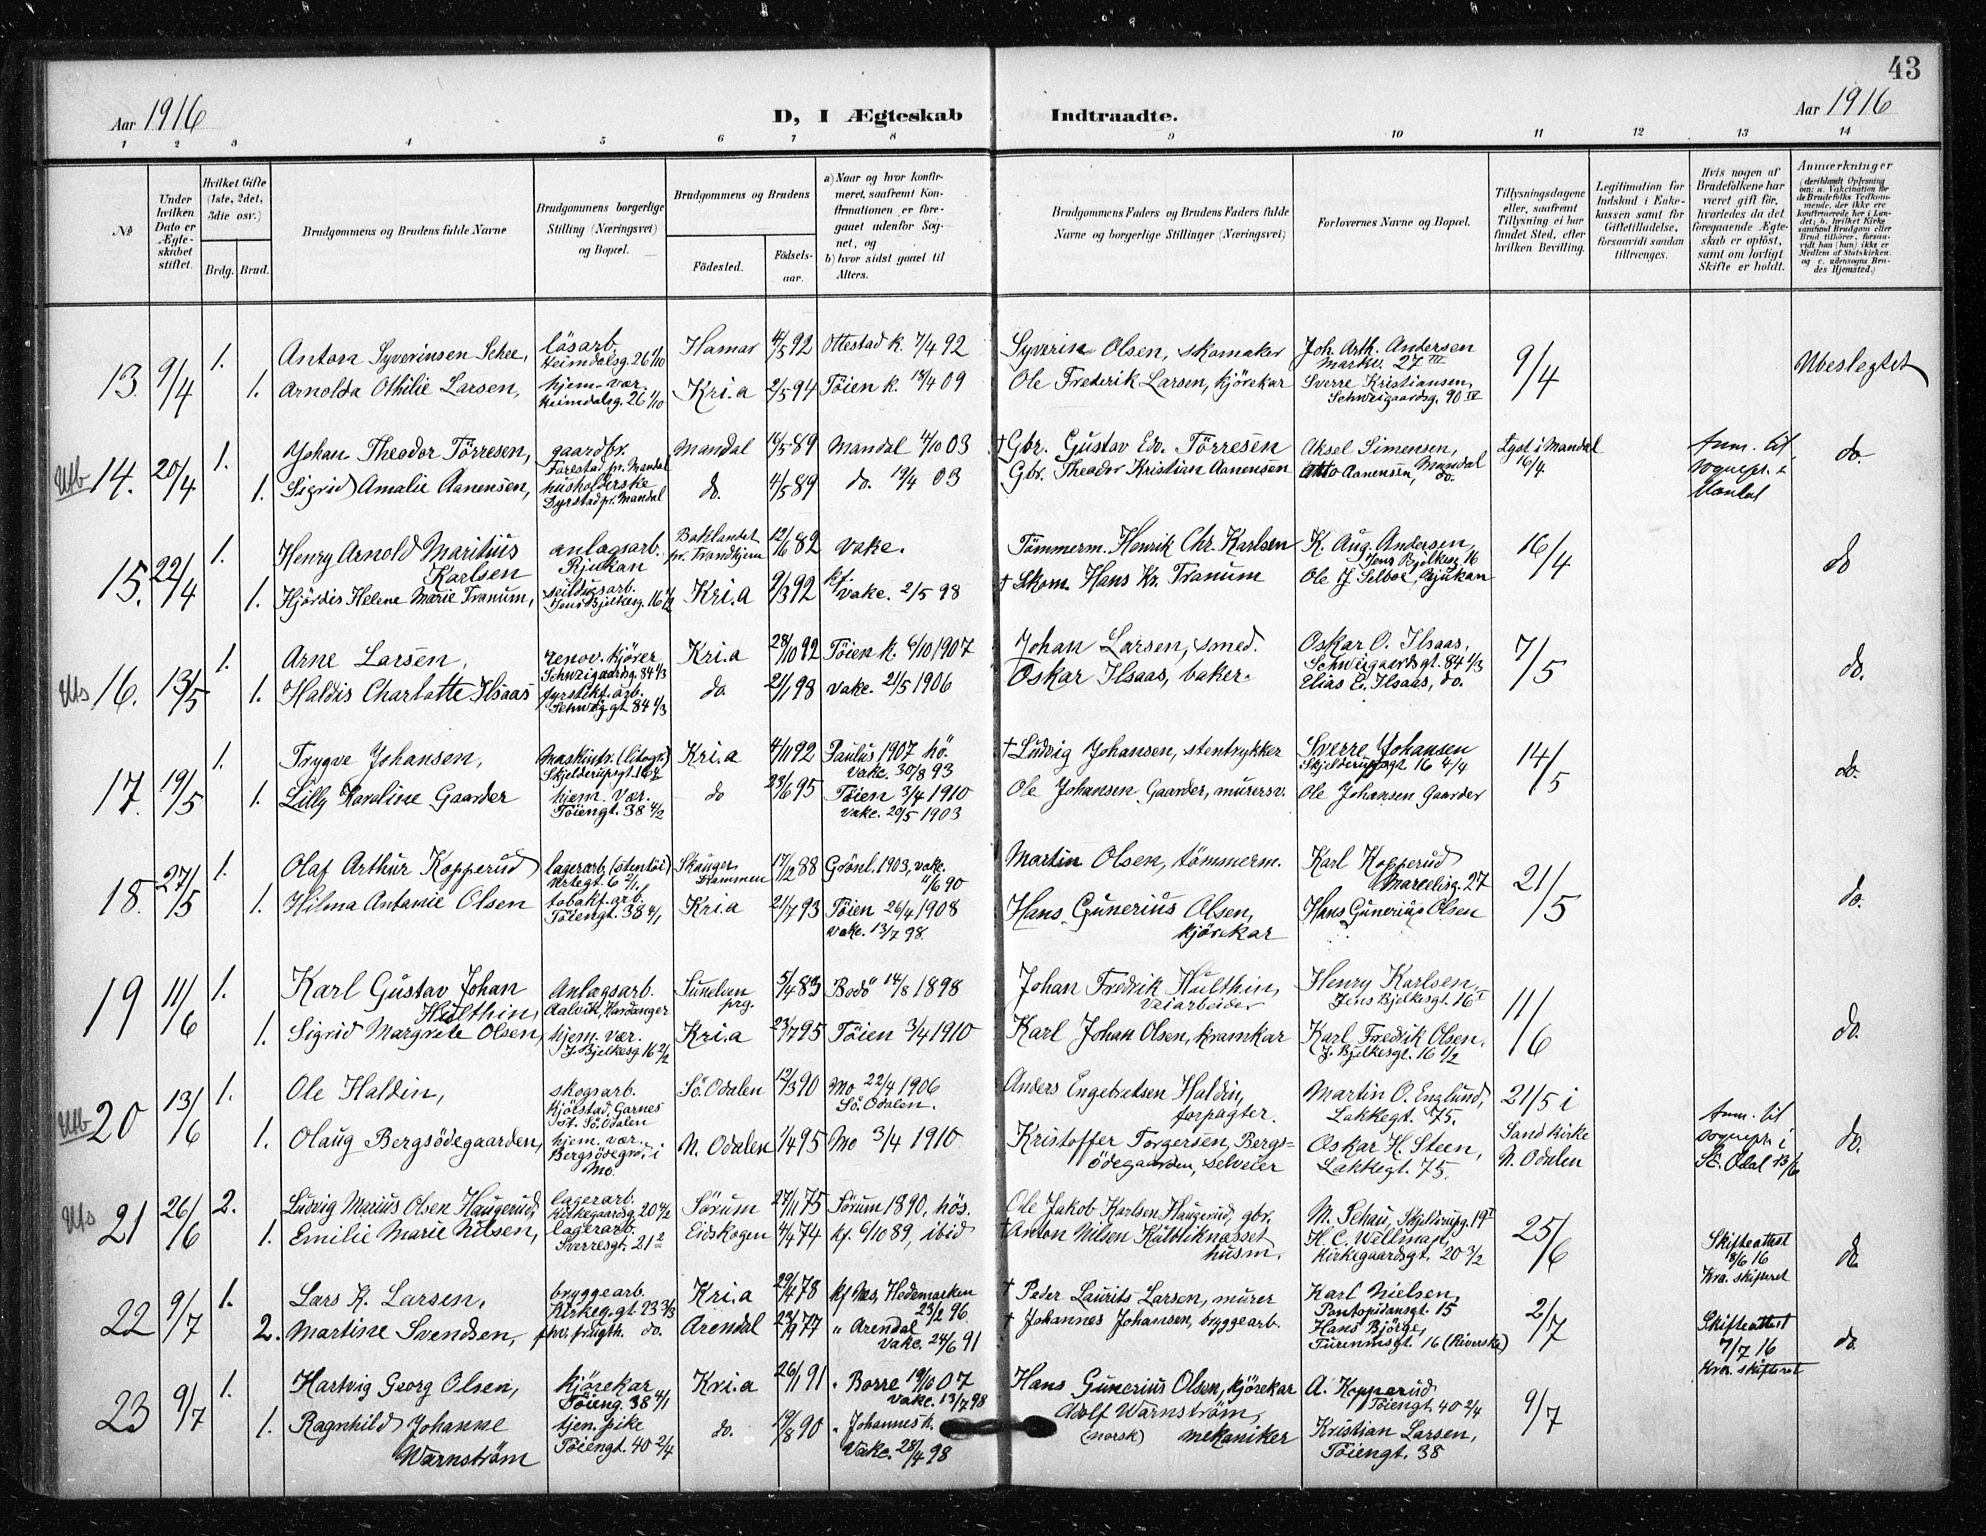 43
Aar 1916
D, I Ægteskab Indtraadte.
Aar 1916
1 2 3 4 5 6 7 8 9 10 11 12 13 14
№
Under hvilken Dato er Ægteskabet stiftet.
Hvilket Gifte (1ste, 2det, 3die osv.)
Brdg. Brud.
Brudgommens og Brudens fulde Navne
Brudgommens borgerlige Stilling (Næringsvei) og Bopæl.
Brudgommens og Brudens
Fødested.
Fødselsaar.
a) Naar og hvor konfirmeret, saafremt Konfirmationen er foregaaet udenfor Sognet, og
b) hvor sidst gaaet til Alters.
Brudgommens Faders og Brudens Faders fulde Navne og borgerlige Stillinger (Næringsvei)
Forlovernes Navne og Bopæl.
Tillysningsdagene eller, saafremt Tillysning ei har fundet Sted, efter hvilken Bevilling.
Legitimation for Indskud i Enkekassen samt for Giftetilladelse, forsaavidt saadan tiltrænges.
Hvis nogen af Brudefolkene har været gift før, hvorledes da det foregaaende Ægteskab er opløst, samt om lovligt Skifte er holdt.
Anmærkninger
(deriblandt Oplysning om: a. Vakcination for de Brudefolks Vedkommende, der ikke ere konfirmerede her i Landet; b. hvilket Kirkesamfund Brudgom eller Brud tilhører, forsaavidt han (hun) ikke er Medlem af Statskirken, og c. udensogns Brudes Hjemsted.)
13. 9/4 1. Antora Syverinsen Schee, løsarb. Heimdalsg. 26 1/10 Hamar 4/5 92 Ottestad k. 7/4 92 Syverin Olsen, skomaker Joh. Arth. Andersen Markv. 27 III 9/4 Ubeslegtet
1. Arnolda Othilie Larsen, hjem. vær. Heimdalsg. 26 1/10 Kr.i.a 2/5 94 Tøien k. 18/4 09 Ole Frederik Larsen, kjørekar Sverre Kristiansen, Schweigaardsg. 90 IV
Utb 14. 20/4 1. Johan Theodor Tørresen, gaardbr. Farestad pr. Mandal Mandal 16/5 89 Mandal 4/10 03 † Gbr. Gustav Edv. Tørresen Aksel Simensen, Mandal Lyst i Mandal 16/4 Anm. til sognepr. i Mandal do.
1. Sigrid Amalie Aanensen, husholderske Dyrstad pr. Mandal do. 4/5 89 do. 19/4 03 Gbr. Theodor Kristian Aanensen Otto Aanensen, do.
15. 22/4 1. Henry Arnold Maritius Karlsen anlægsarb. Rjukan Baklandet pr. Trondhjem 12/16 82 vake. Tømmerm. Henrik Chr. Karlsen K. Aug. Andersen, Jens Bjelkesg. 16 16/4 do
1. Hjørdis Helene Marie Tranum, Jens Bjelkesg. 16 1/2 Kr.i.a 9/3 92 kf. vake. 2/5 98 † Skom. Hans Kr. Tranum Ole J. Selboe, Rjukan
Uts 16. 13/5 1. Arne Larsen, renov. kjører Schweigaardsg. 84 1/3 Kr.i.a 28/10 92 Tøien k. 6/10 1907 Johan Larsen, smed. Oskar O. Ilsaas, Schweigaardsgt. 84 1/3 7/5 do.
1. Haldis Charlotte Ilsaas fyrstikf. arb. Schweig gt 84 1/3 do 2/1 98 vake. 21/5 1906 Oskar Ilsaas, baker. Elias E. Ilsaas, do.
17. 19/5 1. Trygve Johansen, Maskintr. (litogr.) Skjelderupsgt. 16 Kr.i.a 4/11 92 Paulus 1907 hö. vake. 30/8 93 † Ludvig Johansen, stentrykker Sverre Johansen Skjelderupsgt 16 4/4 14/5 do.
1. Lilly Karoline Gaarder hjem. vær. Tøiengt. 38 4/2 do 23/6 95 Tøien 3/4 1910 vake. 20/5 1903 Ole Johansen Gaarder, murersv. Ole Johansen Gaarder
18. 27/5 1. Olaf Arthur Kopperud lagerarb. (stentöi) Urtegt. 6 2/1. Skauger Drammen 17/12 88 Grönl. 1903, vake. 11/6 90 Martin Olsen, tömmerm. Karl Kopperud Marcelisg. 27 21/5 do.
1. Hilma Antonie Olsen tobakf. arb. Töiengt. 38 4/1 Kr.i.a 21/7 93 Töien 26/4 1908 vake. 13/7 98. Hans Gunerius Olsen, kjörekar Hans Gunerius Olsen
19 11/6 1. Karl Gustav Johan Hulthin, Anlægsarb. Aalvik, Hardanger Sunelven prg. 5/4 83 Bodö 14/8 1898 Johan Fredrik Hulthin, Veiarbeider Henry Karlsen, Jens Bjelkesgt. 16 I 11/6 do.
1. Sigrid Margrete Olsen, hjem. vær. J. Bjelkesg 16 2/2 Kr.i.a 23/7 95 Töien 3/4 1910 Karl Johan Olsen, kramkar Karl Fredrik Olsen, J. Bjelkesgt. 16 1/2
Utb 20 13/6 1. Ole Haldin, skogsarb. Kjölstad, Garnes st. Sö. Odalen Sö. Odalen 12/3 90 Mo 22/4 1906 Sö. Odalen. Anders Engebretsen Haldin, forpagter. Martin O. Englund, Lakkegt. 75. 21/5 i Sand kirke N. Odalen Anm. til sognepr. i Sö. Odal 13/6 do.
1. Olaug Bergsödegaarden, hjem. vær. Bergsödegrd. i Mo. N. Odalen 1/4 95 Mo 3/4 1910 Kristoffer Torgersen, Bergsödegaarden, selveier Oskar H. Steen, Lakkegt. 75.
Uts 21 26/6 2. Ludvig Marius Olsen Haugerud, lagerarb. Kirkegaardsg. 20 4/2 Sörum 27/11 75 Sörum 1890, hös. Ole Jakob Karlsen Haugerud, gbr. M. Schau, Skjelderupg. 19 I 25/6 Skifteattest 8/6 16 Kra. skifteret do.
1. Emilie Marie Nilsen, lagerarb. Sverresgt. 21 2 Eidskogen 4/4 74 kf. 6/10 89, ibid † Anton Nilsen Kulbliknæsset husm. H. C. Willman, Kirkegaardsgt. 20 3/2
22 9/7 1. Lars K. Larsen, bryggearb. Kirkeg. gt 23 3/3 Kr.i.a 29/4 78 kf Nes, Hedemarken 23/2 96. † Peder Laurits Larsen, murer Karl Nielsen, Pontopidansgt. 15 2/7 Skifteattest 7/7 16 Kra. skifteret do.
2. Martine Svendsen, frugth. do. Arendal 23/9 77 " Arendal Vake. 24/6 91 † Johannes Johansen, bryggearb. Hans Björge, Turemsgt. 16 (Riverske)
23 9/7 1. Hartvig Georg Olsen, kjörekar Töieng. 38 4/1 Kr.i.a 26/1 91 " Borre 19/10 07 Vake. 13/7 98 Hans Gunerius Olsen, kjörekar A. Kopperud Töiengt. 40 2/4 9/7
1. Ragnhild Johanne Warnström tjen. pike Töiengt. 40 2/4 do. 19/8 90 " Johannes k. Vake. 28/4 98 Adolf Warnström, (norsk) mekaniker Kristian Larsen, Töiengt. 38